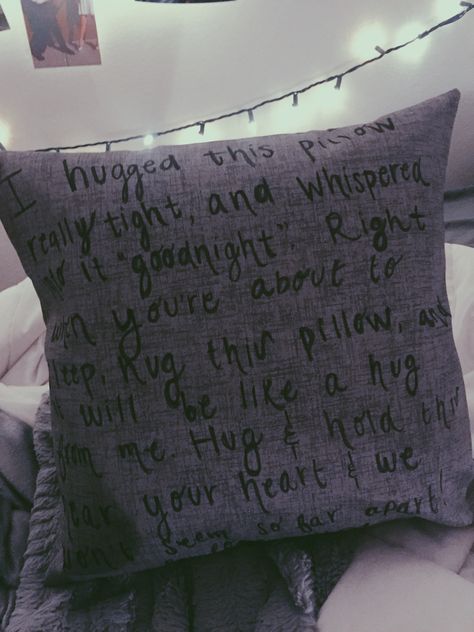 I hugged this pillow
really tight, and whispered
into it "goodnight". Right
when you're about to
sleep, hug this pillow, and
it will be like a hug
from me. Hug & hold this
near your heart & we
won't seem so far apart!